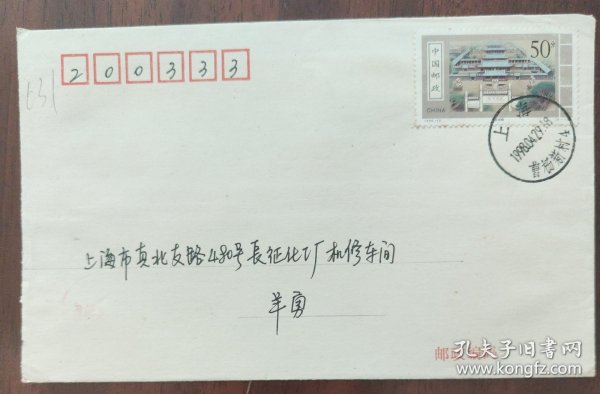 200333
631
50分
中国邮政
CHINA
上海
1998.04.29.18
上海市真北支路480号長征化工厂机修车间
羊勇
邮政
孔夫子旧书网
www.kongfz.com